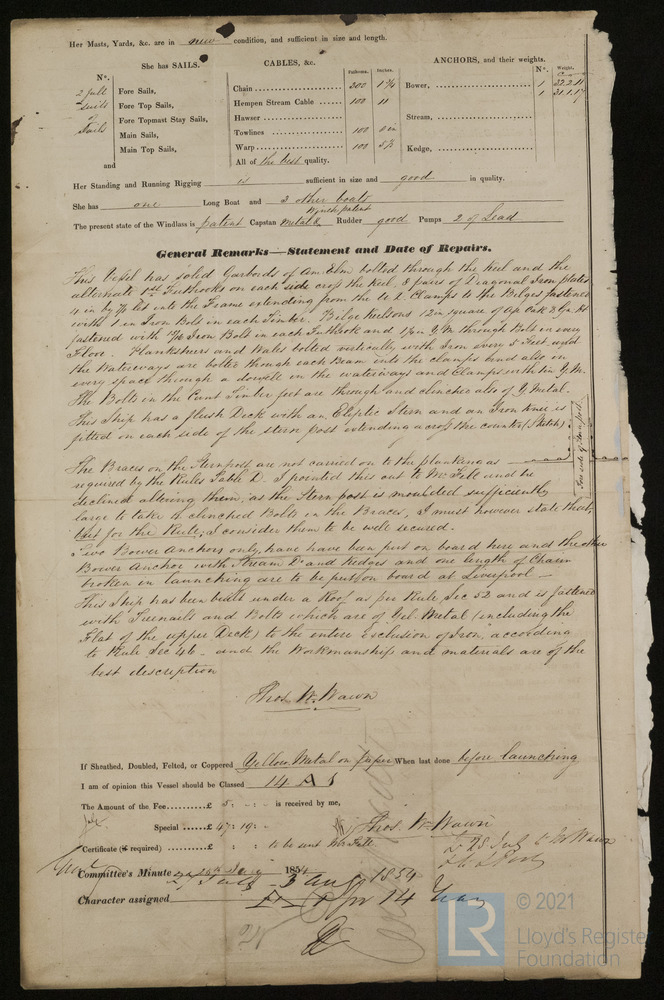 Her Masts, Yards, &c. are in new condition, and sufficient in size and length.
She has SAILS.
CABLES, &c.
ANCHORS, and their weights.
Nº.
Fathoms.
Inches.
Nº.
Weight.
2 full
Fore Sails,
Chain
300
1¾
Bower,
1
22.2.11
suits
Fore Top Sails,
Hempen Stream Cable
100
11
1
21.1.17
of
Fore Topmast Stay Sails,
Hawser
Sails
Main Sails,
Towlines
100
8 in
Stream,
Main Top Sails,
Warp
100
5½
Kedge,
and
All of the best quality.
Her Standing and Running Rigging is sufficient in size and good in quality.
She has one Long Boat and 3 other boats
The present state of the Windlass is patent Capstan Metal & Winch, patent Rudder good Pumps 2 of Lead
General Remarks—Statement and Date of Repairs.
This Vessel has solid Garbords of Am. Elm bolted through the Keel and the
alternate 1st Futtocks on each side cross the Keel, 8 pairs of Diagonal Iron plates
4 in by ⅝ let into the Frame extending from the Clamps to the Bilges fastened
with 1 in Iron Bolts in each Timber. Bilge Keelsons 12 in square of Af. Oak & Gn. Ht
fastened with Iron Bolt in each Futtock and Y. M through Bolt in every
Floor. Planksheers and Wales bolted vertically with Iron every 5 Feet and
the Waterways are bolted through each Beam into the clamps and also in
every space through a dowell in the waterways and Clamps with 1 in Y. M.
The Bolts in the Cant Timber feet are through and clinched also of Y Metal.
This Ship has a flush Deck with an Eliptic Stern and an Iron Knee is
fitted on each side of the stern post extending across the counter (Sketch)
Fore side of Stern post
The Braces on the Sternpost are not carried on to the planking as
required by the Rules Table D. I pointed this out to Mr. Fell and he
declined altering them, as the Stern post is moulded sufficiently
large to take 4 clinched Bolts in the Braces, I must however state that,
but for the Rule, I consider them to be well secured.
Two Bower Anchors only, have been put on board here and the other
Bower Anchor with Stream Do. and Kedges and one length of Chain
broken in launching are to be put on board at Liverpool —
This Ship has been built under a Roof as per Rule Sec 52 and is fastened
with Treenails and Bolts which are of Yel. Metal (including the
Flat of the upper Deck) to the entire Exclusion of Iron, according
to Rule Sec 46 - and the Workmanship and materials are of the
best description
Thos. W. Wawn
If Sheathed, Doubled, Felted, or Coppered Yellow Metal on paper When last done before launching
I am of opinion this Vessel should be Classed 14 A 1
The Amount of the Fee £ 5: - : - is received by me,
Special £ 47: 19: - Thos. W. Wawn
Certificate (if required) : : to be sent Mr. Fell
28 July
Committee's Minute 185
3 Aug 1854
Character assigned A 1 for 14 Years
LR
© 2021
Lloyd's Register
Foundation